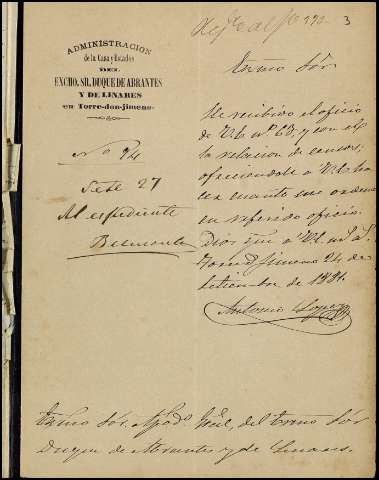 3
ADMINISTRACION
de la Casa y Estados
DEL
EXCMO. SR. DUQUE DE ABRANTES
Y DE LINARES
en Torre-don-jimeno
Nº 94
Sete 27
Al espediente
Excmo Sór
He recibido el oficio
de V.E. nº 63, y con él
la relacion de censos,
ofreciendole a V.E. ha
cer cuanto me ordena
en referido oficio.
Dios gue a V.E. m.s a.s
Torredjimeno 24 de
Setiembre de 1881.
Antonio Lopez
Excmo Sór. Apodo. Gral. del Excmo Sór
Duque de Abrantes y de Linares.